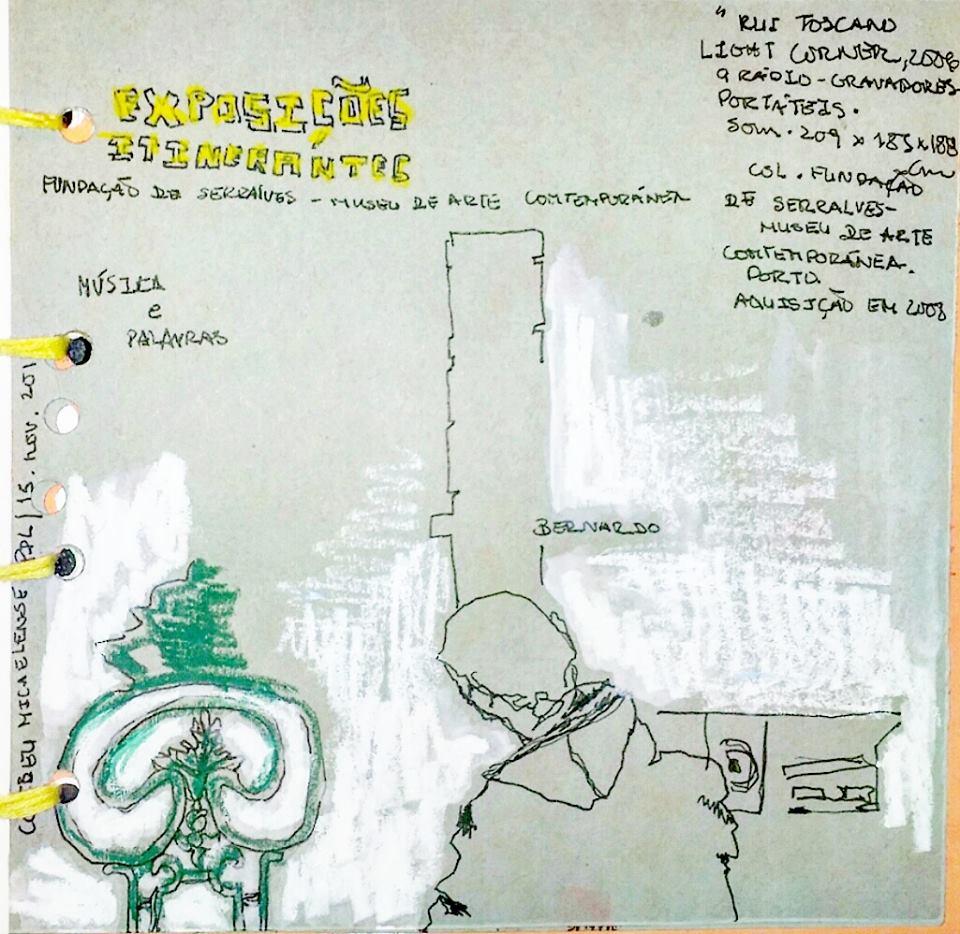 EXPOSIÇÕES
ITINERANTES
FUNDAÇÃO DE SERRALVES - MUSEU DE ARTE CONTEMPORÁNEA
MÚSICA
e
PALAVRAS
" RUI TOSCANO
LIGHT CORNER, 2006
9 RÁDIO-GRAVADORES
PORTÁTEIS.
SOM. 209 x 185 x 188
cm
COL. FUNDAÇÃO
DE SERRALVES-
MUSEU DE ARTE
CONTEMPORÁNEA.
PORTO.
AQUISIÇÃO EM 2008
BERNARDO
MICAELENSE PDL | 15. NOV. 201